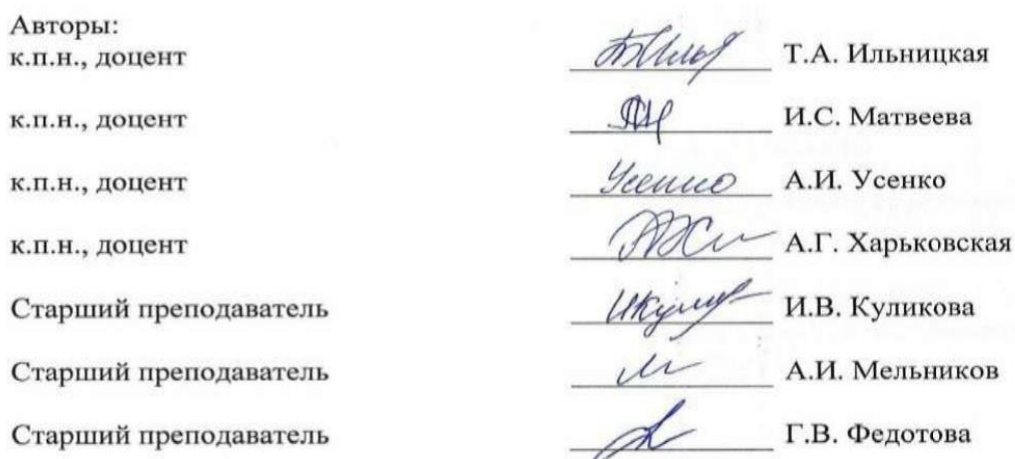 Авторы:
к.п.н., доцент Т.А. Ильницкая
к.п.н., доцент И.С. Матвеева
к.п.н., доцент Усенко А.И. Усенко
к.п.н., доцент А.Г. Харьковская
Старший преподаватель И.В. Куликова
Старший преподаватель А.И. Мельников
Старший преподаватель Г.В. Федотова